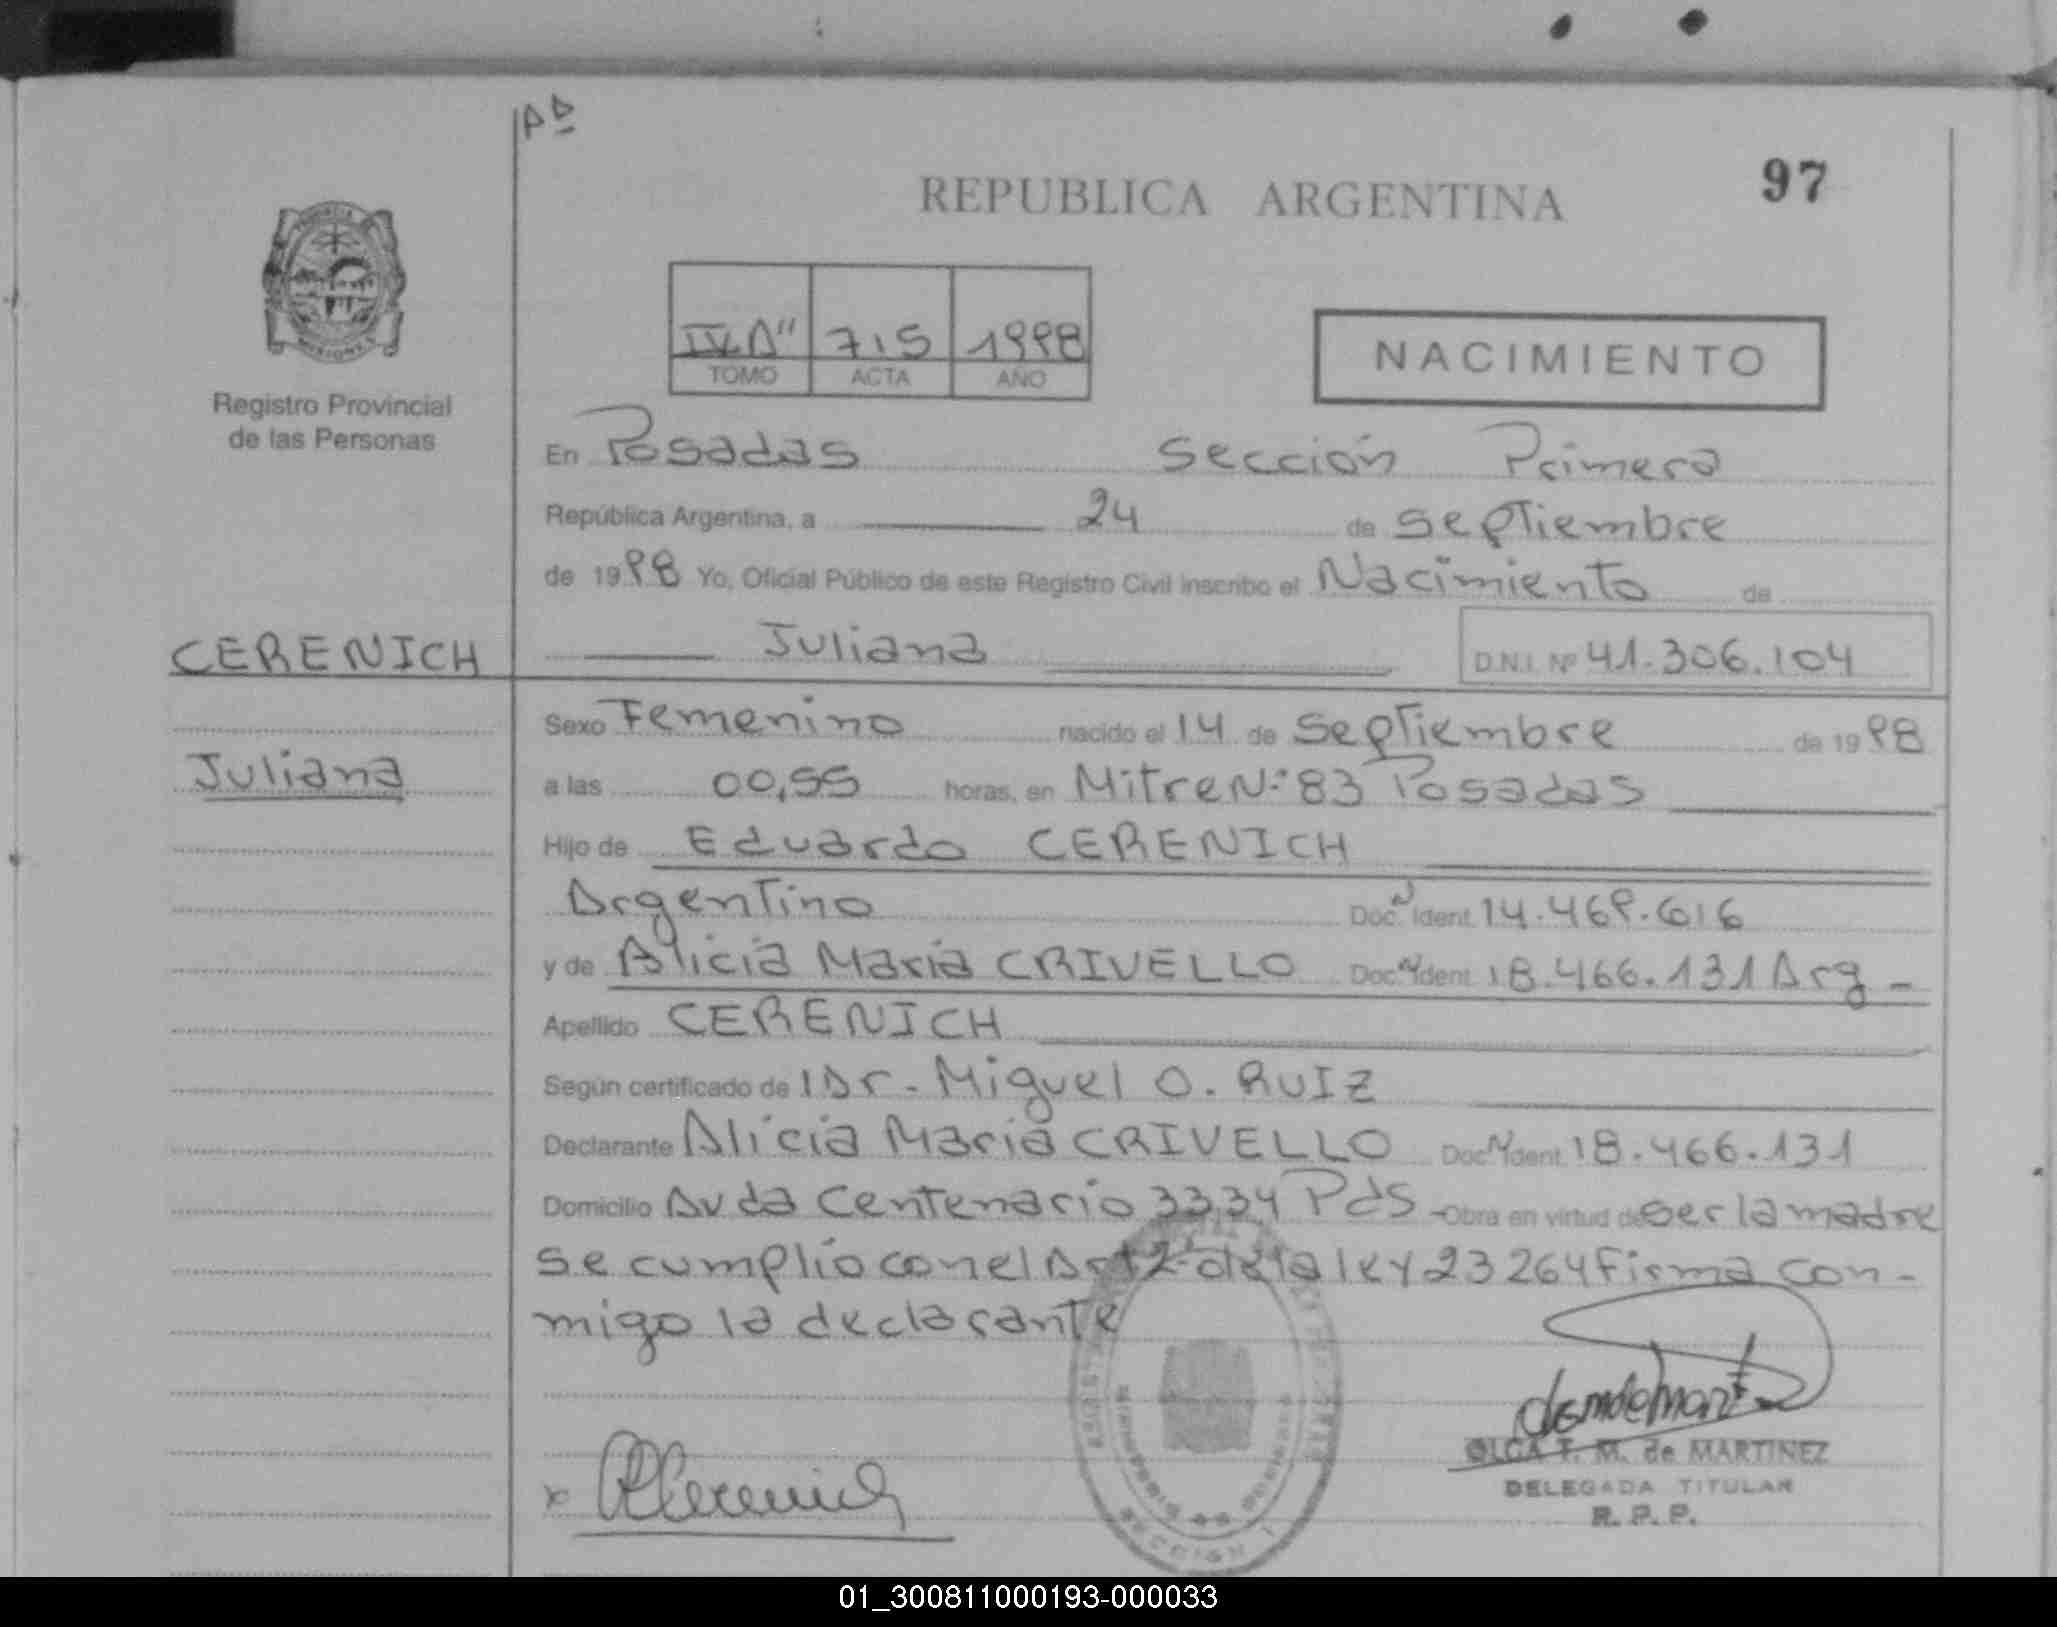 97
REPUBLICA ARGENTINA
715 1998
TOMO ACTA AÑO
NACIMIENTO
Registro Provincial
de las Personas
En Posadas Sección Primera
República Argentina, a 24 de Septiembre
de 1998 Yo, Oficial Público de este Registro Civil inscribo el Nacimiento de
CERENICH
Juliana D.N.I. Nº 41.306.104
Juliana
Sexo Femenino nacido el 14 de Septiembre de 1998
a las 00,55 horas, en Mitre N° 83 Posadas
Hijo de Eduardo CERENICH
Argentino Doc. Ident. 14.469.616
y de Alicia Maria CRIVELLO Doc. Ident. 18.466.131 Arg -
Apellido CERENICH
Según certificado de Dr. Miguel O. RUIZ
Declarante Alicia Maria CRIVELLO Doc. Ident. 18.466.131
Domicilio Avda Centenario 3334 Pds - Obra en virtud de ser la madre
se cumplio con el Art 2° de la ley 23264 Firma con-
migo la declarante
x
OLGA T. M. de MARTINEZ
DELEGADA TITULAR
R. P. P.
SECCION 1
01_300811000193-000033